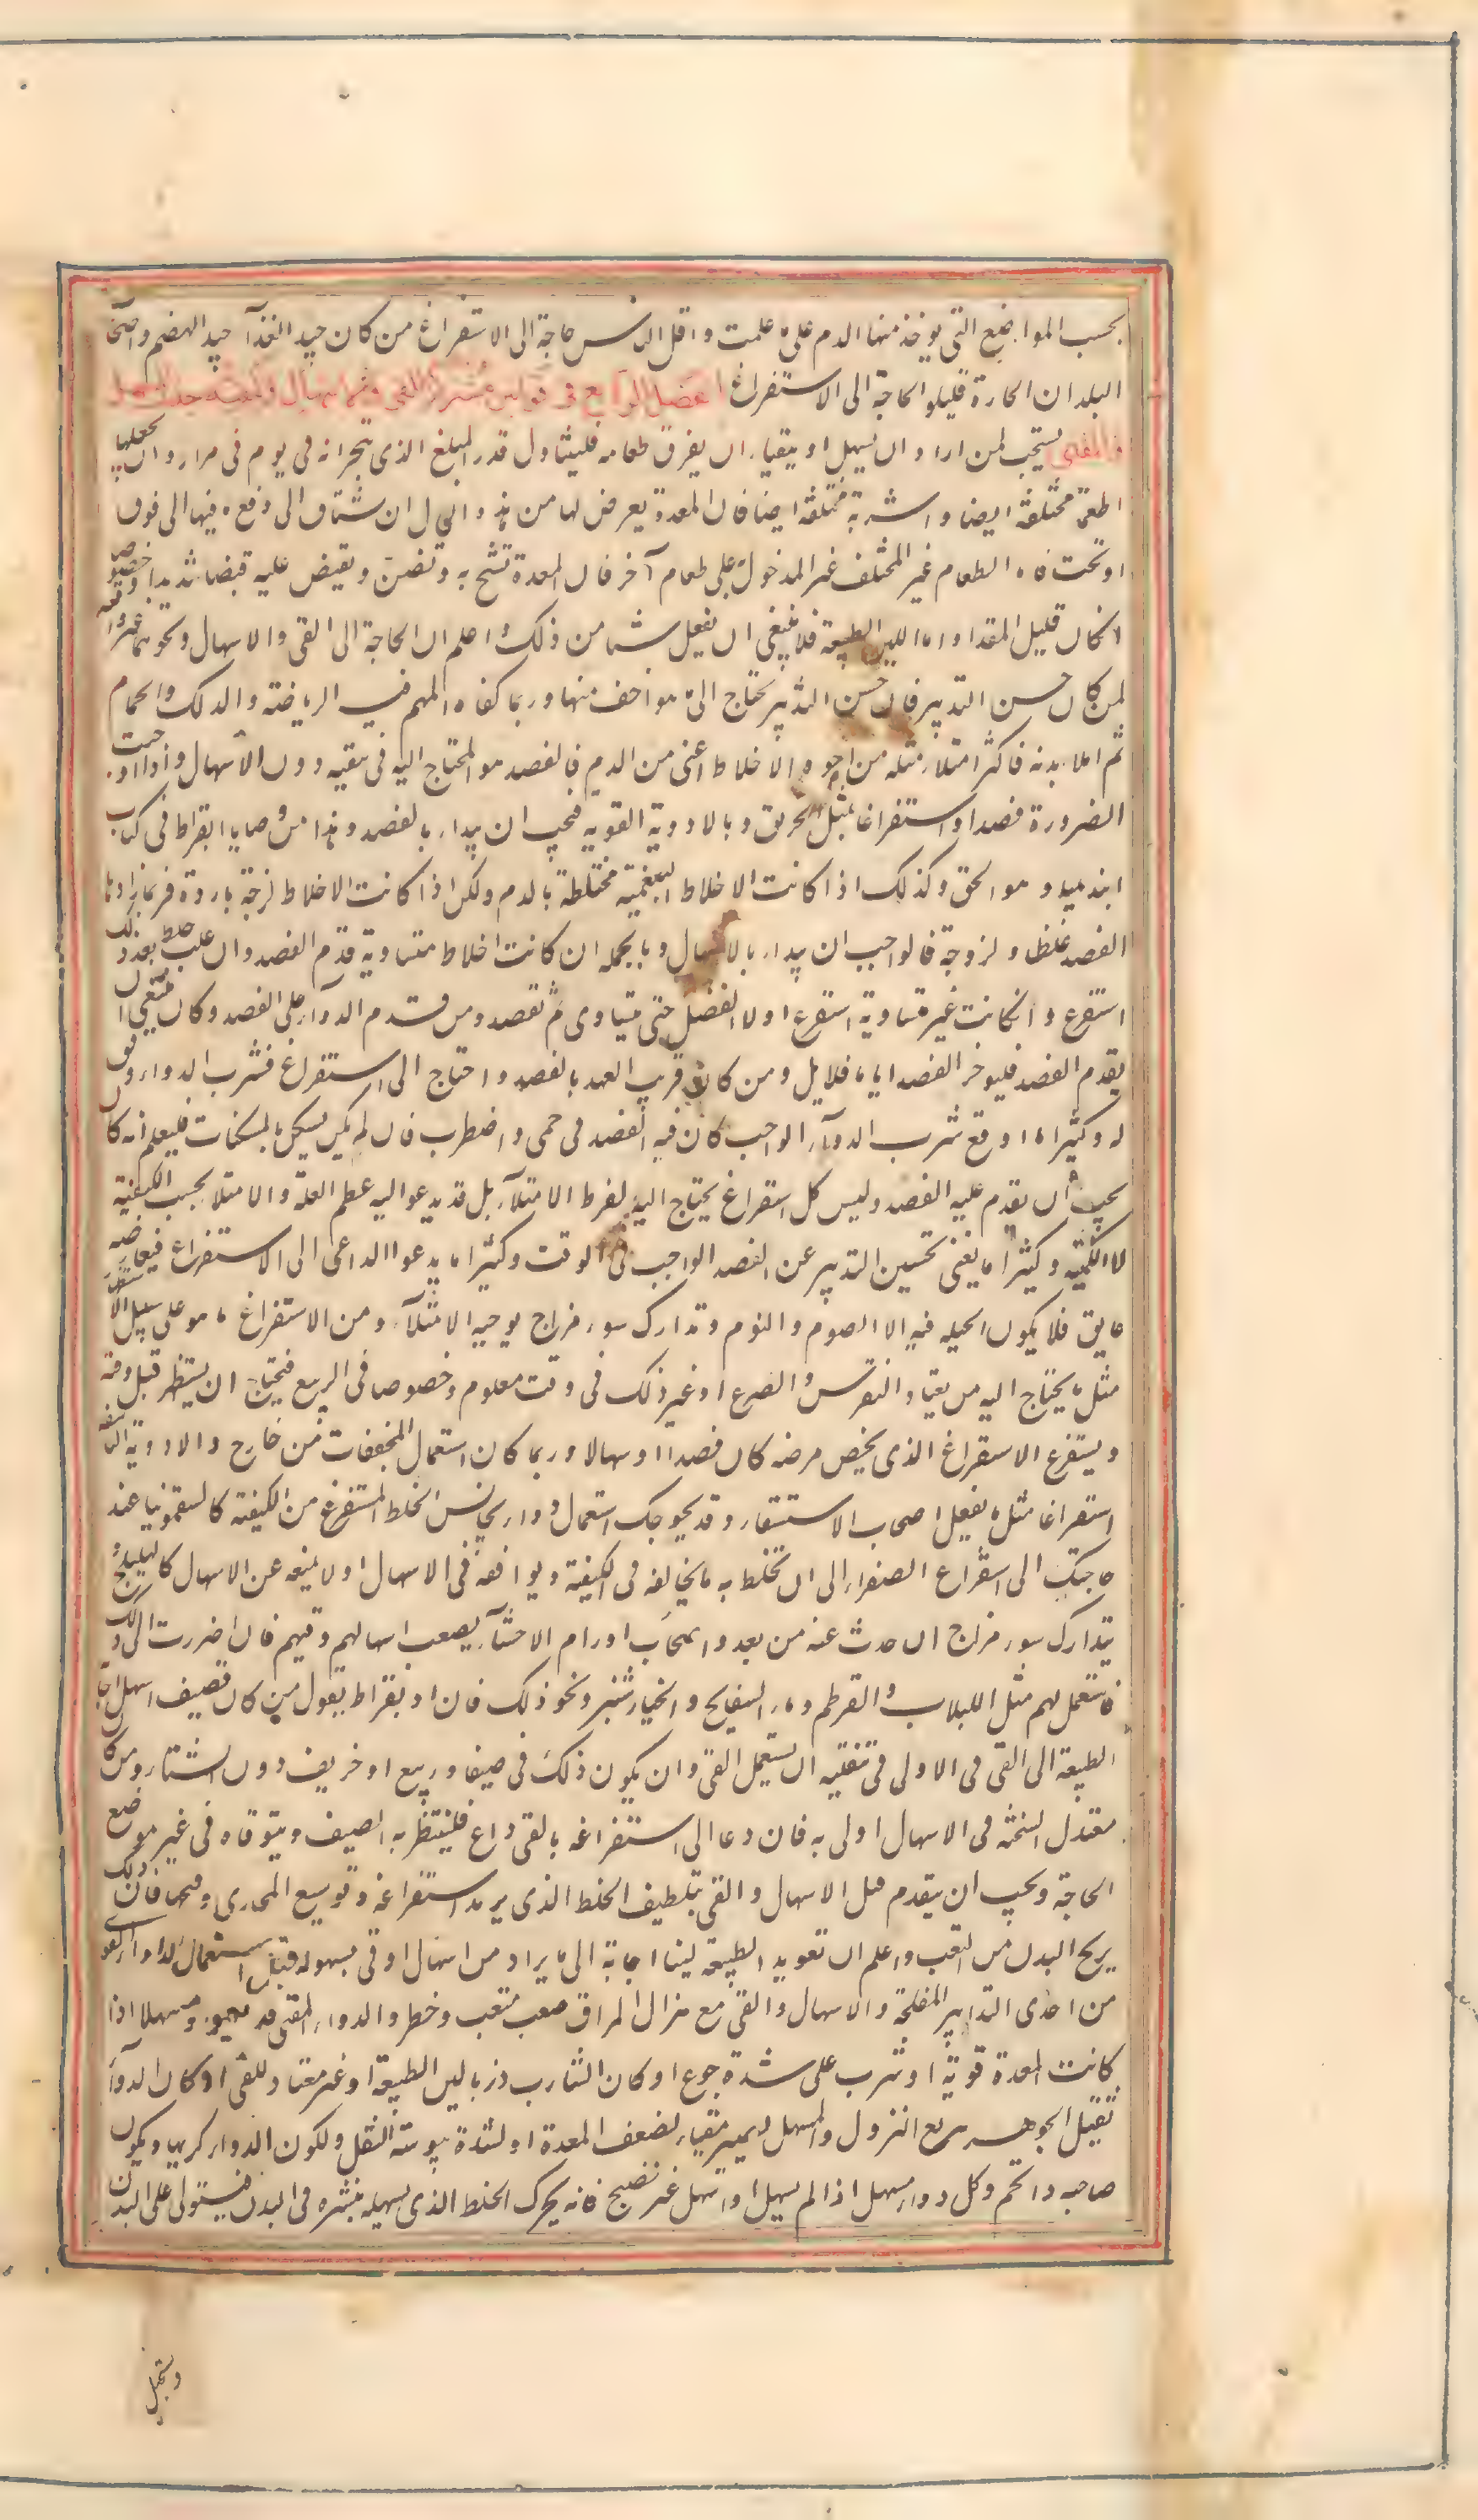 بحسب المواضع التى يوخذ منها الدم على ما علمت واقل الناس حاجة الى الاستفراغ من كان جيد الغذآ جيد الهضم واصحاب
البلدان الحارة قليلو الحاجة الى الاستفراغ الفصل الرابع فى قوانين مشتركة للقى والاسهال
والمقئ يستحب لمن اراد ان يسهل او يتقيا ان يفرق طعامه فليتناول قدر المبلغ الذى يتجرانه فى يوم فى مرار وان يجعلها
اطعمة مختلفة ايضا واشربة مختلفة ايضا فان المعدة يعرض لها من هذه الحال ان تشتاق الى دفع ما فيها الى فوق
او تحت فاما الطعام غير المختلف غير المدخول على طعام آخر فان المعدة تشح به وتضن وتقبض عليه قبضا شديدا وخصوصا
انكان قليل المقدار واما اللين الطبيعة فلا ينبغى ان يفعل شيا من ذلك واعلم ان الحاجة الى القى والاسهال ونحوهما غير واقعة
لمن كان حسن التدبير فان حسن التدبير يحتاج الى ما هو اخف منها وربما كفاه المهم فيه الرياضة والدلك والحمام
ثم ان امتلا بدنه فاكثر امتلائه مثله من اجود الاخلاط اعنى من الدم فالفصد هو المحتاج اليه فى تنقيه دون الاسهال واذا اوجبت
الضرورة فصدا واستفراغا بمثل الخربق وبالادوية القويه فيجب ان يبدا بالفصد وهذا من وصايا ابقراط فى كتاب
ابيذيميا وهو الحق وكذلك اذا كانت الاخلاط البلغمية مختلطة بالدم ولكن اذا كانت الاخلاط لزجة باردة فربما زادها
الفصد غلظا ولزوجة فالواجب ان يبدا بالاسهال وبالجمله ان كانت اخلاط متساوية قدم الفصد وان غلب خلط بعد ذلك
استفرغ وانكانت غير متساوية استفرغ اولا الفضل حتى يتساوى ثم تفصد ومن قدم الدوآ على الفصد وكان ينبغى ان
يقدم الفصد فليوخر الفصد اياما قلايل ومن كان قريب العهد بالفصد واحتاج الى استفراغ فشرب الدوا اوفق
له وكثيرا ما اوقع شرب الدوآ الواجب كان فيه الفصد فى حمى واضطراب فان لم يكن يسكن بالمسكنات فليعلم انه كان
يجب ان يقدم عليه الفصد وليس كل استفراغ يحتاج اليه لفرط الامتلآ بل قد يدعو اليه عظم العلة والامتلا بحسب الكيفية
لا الكمية وكثيرا ما يغنى تحسين التدبير عن الفصد الواجب فى الوقت وكثيرا ما يدعوا الداعى الى الاستفراغ فيعارضه
عايق فلا يكون الحيله فيه الا الصوم والنوم وتدارك سوء مزاج يوجبه الامتلآ ومن الاستفراغ ما هو على سبيل الاستظهار
مثل ما يحتاج اليه من يعتاده النقرس والصرع او غير ذلك فى وقت معلوم وخصوصا فى الربيع فيحتاج ان يستظهر قبل وقته
ويستفرغ الاستفراغ الذى يخص مرضه كان فصدا او اسهالا وربما كان استعمال المجففات من خارج والادوية الناشفة
استفراغا مثل ما يفعل باصحاب الاستسقاء وقد يحوجك استعمال دواء يجانس الخلط المستفرغ من الكيفية كالسقمونيا عند
حاجتك الى استفراغ الصفراء الى ان تخلط به ما يخالفه فى الكيفية ويوافقه فى الاسهال او لا يمنعه عن الاسهال كالهليلج و
يتدارك سوء مزاج ان حدث عنه من بعد واصحاب اورام الاحشآء يصعب اسهالهم وقيهم فان اضطررت الى ذلك
فاستعمل لهم مثل اللبلاب والقرطم وماء البسفايج والخيارشنبر ونحو ذلك فان ابقراط يقول من كان قضيف اسهل اجابة
الطبيعة الى القى فى الاولى فى تنقيه ان يستعمل القى وان يكون ذلك فى صيف او ربيع او خريف دون الشتاء ومن كان
معتدل السخنه فى الاسهال اولى به فان دعا الى استفراغه بالقى داع فلينتظر به الصيف ويتوقاه فى غير موضع
الحاجة ويجب ان يتقدم قبل الاسهال والقى بتلطيف الخلط الذى يريد استفراغه وتوسيع المجارى وفتحها فان ذلك
يريح البدن من التعب واعلم ان تعويد الطبيعة لينا اجابة الى ما يراد من اسهال او قى بسهوله قبل استعمال الدواء القوى
من احدى التدابير المفلحة والاسهال والقى مع هزال المراق صعب متعب وخطر والدواء المقى قد يعود مسهلا اذا
كانت المعدة قوية او شرب على شدة جوع او كان الشارب ذربا لين الطبيعة او غير معتاد للقى او كان الدوآ
ثقيل الجوهر سريع النزول والمسهل يصير مقيا لضعف المعدة او لشدة يبوسة الثفل ولكون الدوا كريها ويكون
صاحبه ذا تخم وكل دواء مسهل اذا لم يسهل او اسهل غير نضيج فانه يحرك الخلط الذى يسهله ينشره فى البدن فيستولى على البدن